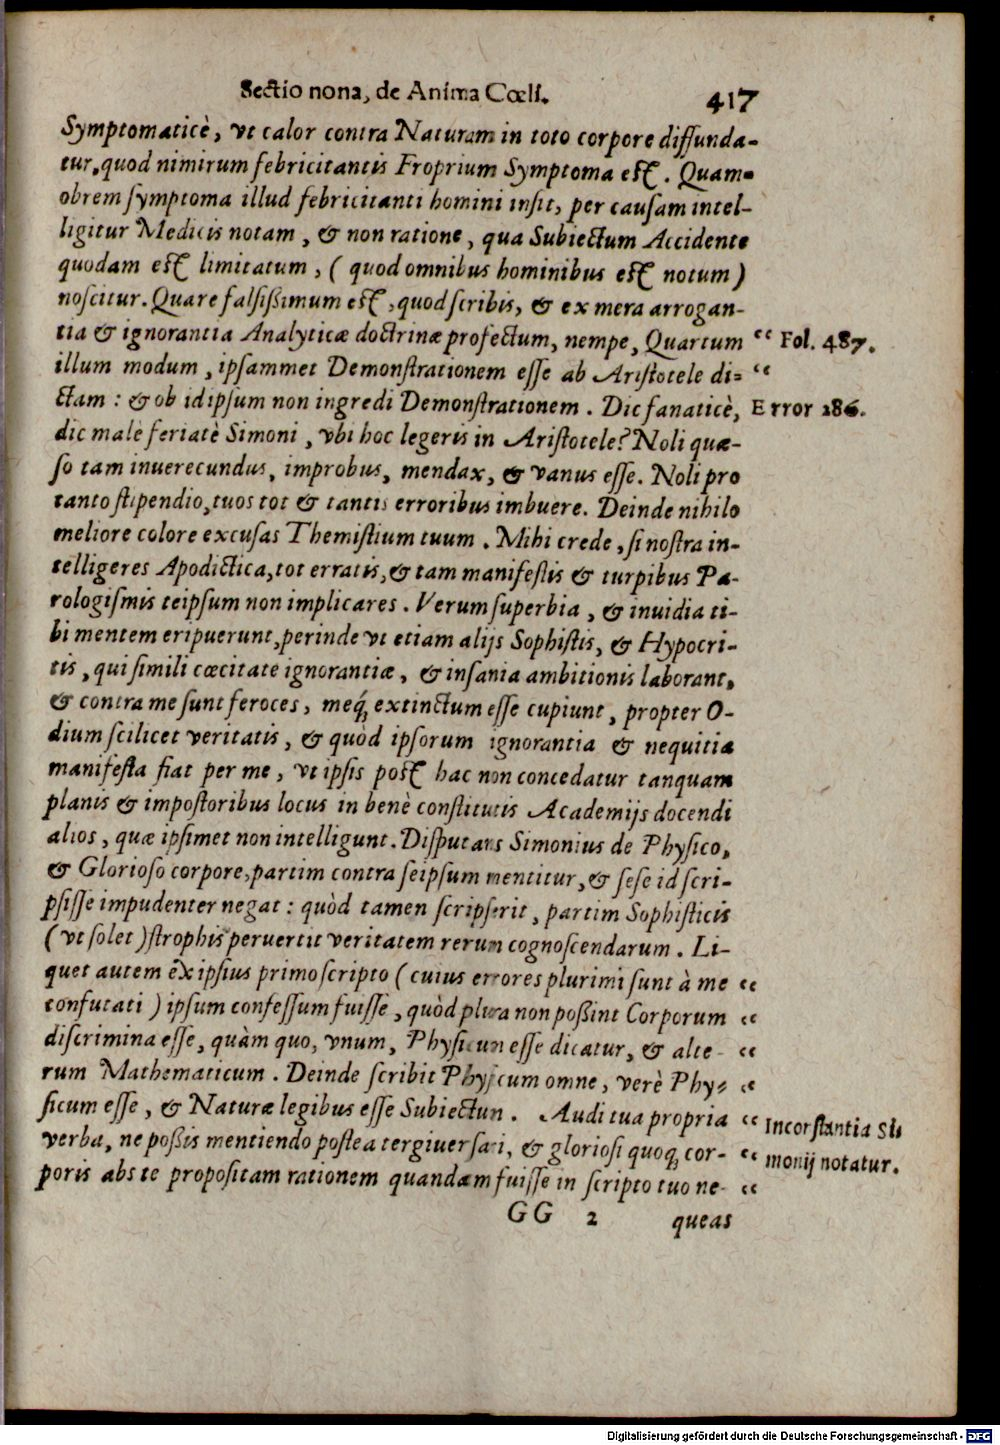 Sectio nona, de Anima Cœli.
417
Symptomaticè, vt calor contra Naturam in toto corpore diffunda-
tur, quod nimirum febricitantis Froprium Symptoma est. Quam-
obrem symptoma illud febricitanti homini insit, per causam intel-
ligitur Medicis notam, & non ratione, qua Subiectum Accidente
quodam est limitatum, (quod omnibus hominibus est notum)
noscitur. Quare falsißimum est, quod scribis, & ex mera arrogan-
tia & ignorantia Analyticæ doctrinæ profectum, nempe, Quartum
“ Fol. 487.
illum modum, ipsammet Demonstrationem esse ab Aristotele di=
“
ctam: & ob id ipsum non ingredi Demonstrationem. Dic fanaticè,
Error 286.
dic malè feriatè Simoni, vbi hoc legeris in Aristotele? Noli quæ-
so tam inuerecundus, improbus, mendax, & vanus esse. Noli pro
tanto stipendio, tuos tot & tantis erroribus imbuere. Deinde nihilo
meliore colore excusas Themistium tuum. Mihi crede, si nostra in-
telligeres Apodictica, tot erratis, & tam manifestis & turpibus Pa-
rologismis teipsum non implicares. Verum superbia, & inuidia ti-
bi mentem eripuerunt, perinde vt etiam alijs Sophistis, & Hypocri-
tis, qui simili cœcitate ignorantiæ, & insania ambitionis laborant,
& contra me sunt feroces, meq́; extinctum esse cupiunt, propter O-
dium scilicet veritatis, & quòd ipsorum ignorantia & nequitia
manifesta fiat per me, vt ipsis post hac non concedatur tanquam
planis & impostoribus locus in benè constitutis Academijs docendi
alios, quæ ipsimet non intelligunt. Disputans Simonius de Physico,
& Glorioso corpore, partim contra seipsum mentitur, & sese id scri-
psisse impudenter negat: quòd tamen scripserit, partim Sophisticis
(vt solet) strophis peruertit veritatem rerum cognoscendarum. Li-
quet autem ex ipsius primo scripto (cuius errores plurimi sunt à me
“
confutati) ipsum confessum fuisse, quòd plura non poßint Corporum
“
discrimina esse, quàm quo, vnum, Physicum esse dicatur, & alte-
“
rum Mathematicum. Deinde scribit Physicum omne, verè Phy=
“
sicum esse, & Naturæ legibus esse Subiectum. Audi tua propria
“ Incorstantia Si
verba, ne poßis mentiendo postea tergiuersari, & gloriosi quoq; cor-
“ monij notatur.
poris abs te propositam rationem quandam fuisse in scripto tuo ne-
“
GG 2
queas
Digitalisierung gefördert durch die Deutsche Forschungsgemeinschaft - DFG